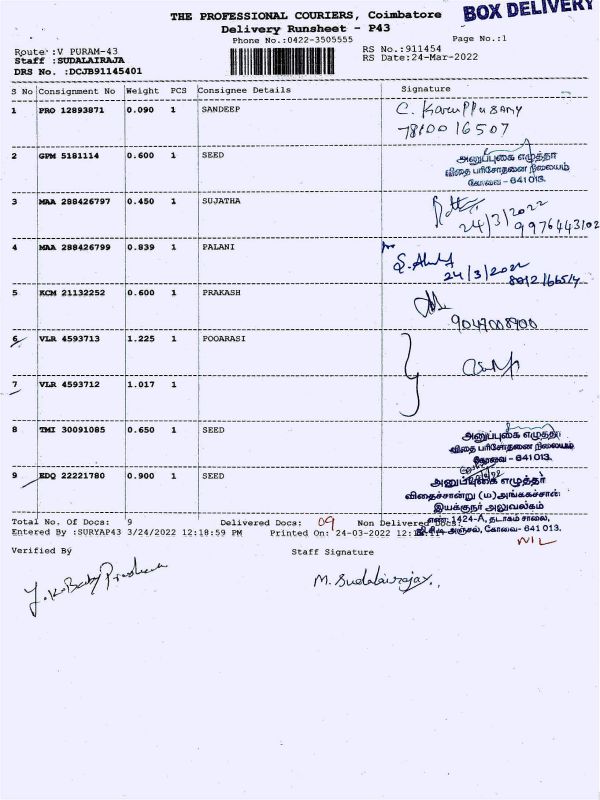 THE PROFESSIONAL COURIERS, Coimbatore
BOX DELIVERY
Delivery Runsheet - P43
Phone No.:0422-3505555
Page No.:1
Route :V PURAM-43
RS No.:911454
Staff :SUDALAIRAJA
RS Date:24-Mar-2022
DRS No. :DCJB91145401
S No Consignment No Weight PCS Consignee Details Signature
1 PRO 12893871 0.090 1 SANDEEP C. Karuppusamy
7810016507
2 GPM 5181114 0.600 1 SEED அனுப்புகை எழுத்தர்
விதை பரிசோதனை நிலையம்
கோவை - 641 013.
3 MAA 288426797 0.450 1 SUJATHA
24/3/2022
4 MAA 288426799 0.839 1 PALANI
24/3/2022
5 KCM 21132252 0.600 1 PRAKASH
9047008900
6 VLR 4593713 1.225 1 POOARASI
7 VLR 4593712 1.017 1
8 TMI 30091085 0.650 1 SEED அனுப்புகை எழுத்தர்
விதை பரிசோதனை நிலையம்
கோவை - 641 013.
9 EDQ 22221780 0.900 1 SEED அனுப்புகை எழுத்தர்
விதைச்சான்று (ம) அங்ககச்சான்
இயக்குநர் அலுவலகம்
எண்: 1424-A, தடாகம் சாலை,
அஞ்சல், கோவை- 641 013.
Total No. Of Docs: 9 Delivered Docs: 09 Non Delivered Docs: NIL
Entered By :SURYAP43 3/24/2022 12:18:59 PM Printed On: 24-03-2022
Verified By Staff Signature
M. Sudalairajar